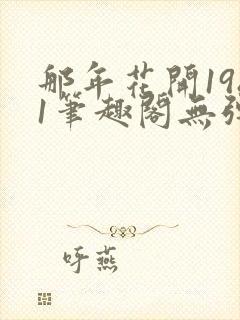 那年花開19
1筆趣閣無彈
呼燕